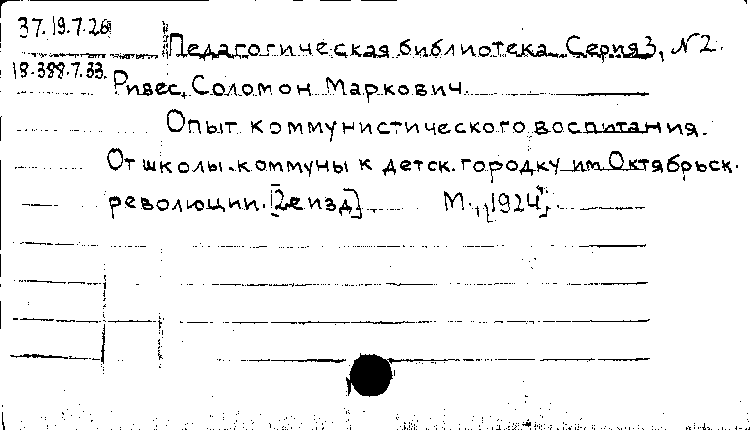 37.19.7.26
Педагогическая библиотека Серия 3, N 2.
18.388.7.33.
Ривес, Соломон Маркович.
Опыт коммунистического воспитания.
От школы-коммуны к детск. городку им. Октябрьск.
революции. [2е изд]. М., [1924].